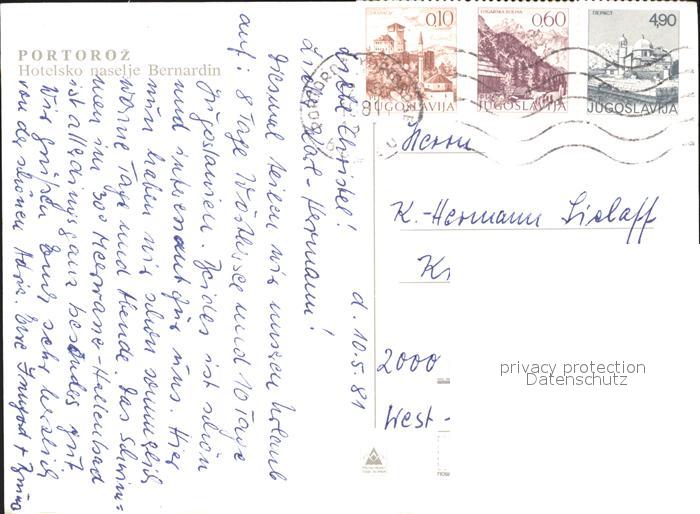 PORTOROŽ
Hotelsko naselje Bernardin
0,10
0,60
4,90
JUGOSLAVIJA
JUGOSLAVIJA
JUGOSLAVIJA
d. 10.5.81
Liebe Christel!
Lieber Karl-Hermann!
Diesmal teilen wir unseren Urlaub
auf: 8 Tage Wörthsee und 10 Tage
Jugoslawien. Beides ist schön
und interessant für uns. Hier
nun haben wir schon sommerlich
warme Tage und Abende. Das Schwim=
men im 30° Meerwasser-Hallenbad
ist allerdings ganz besonders gut.
Wir grüßen Euch sehr herzlich
von der schönen Adria. Eure Irmgard +
Herrn
K.-Hermann Sielaff
2000
West-
privacy protection
Datenschutz